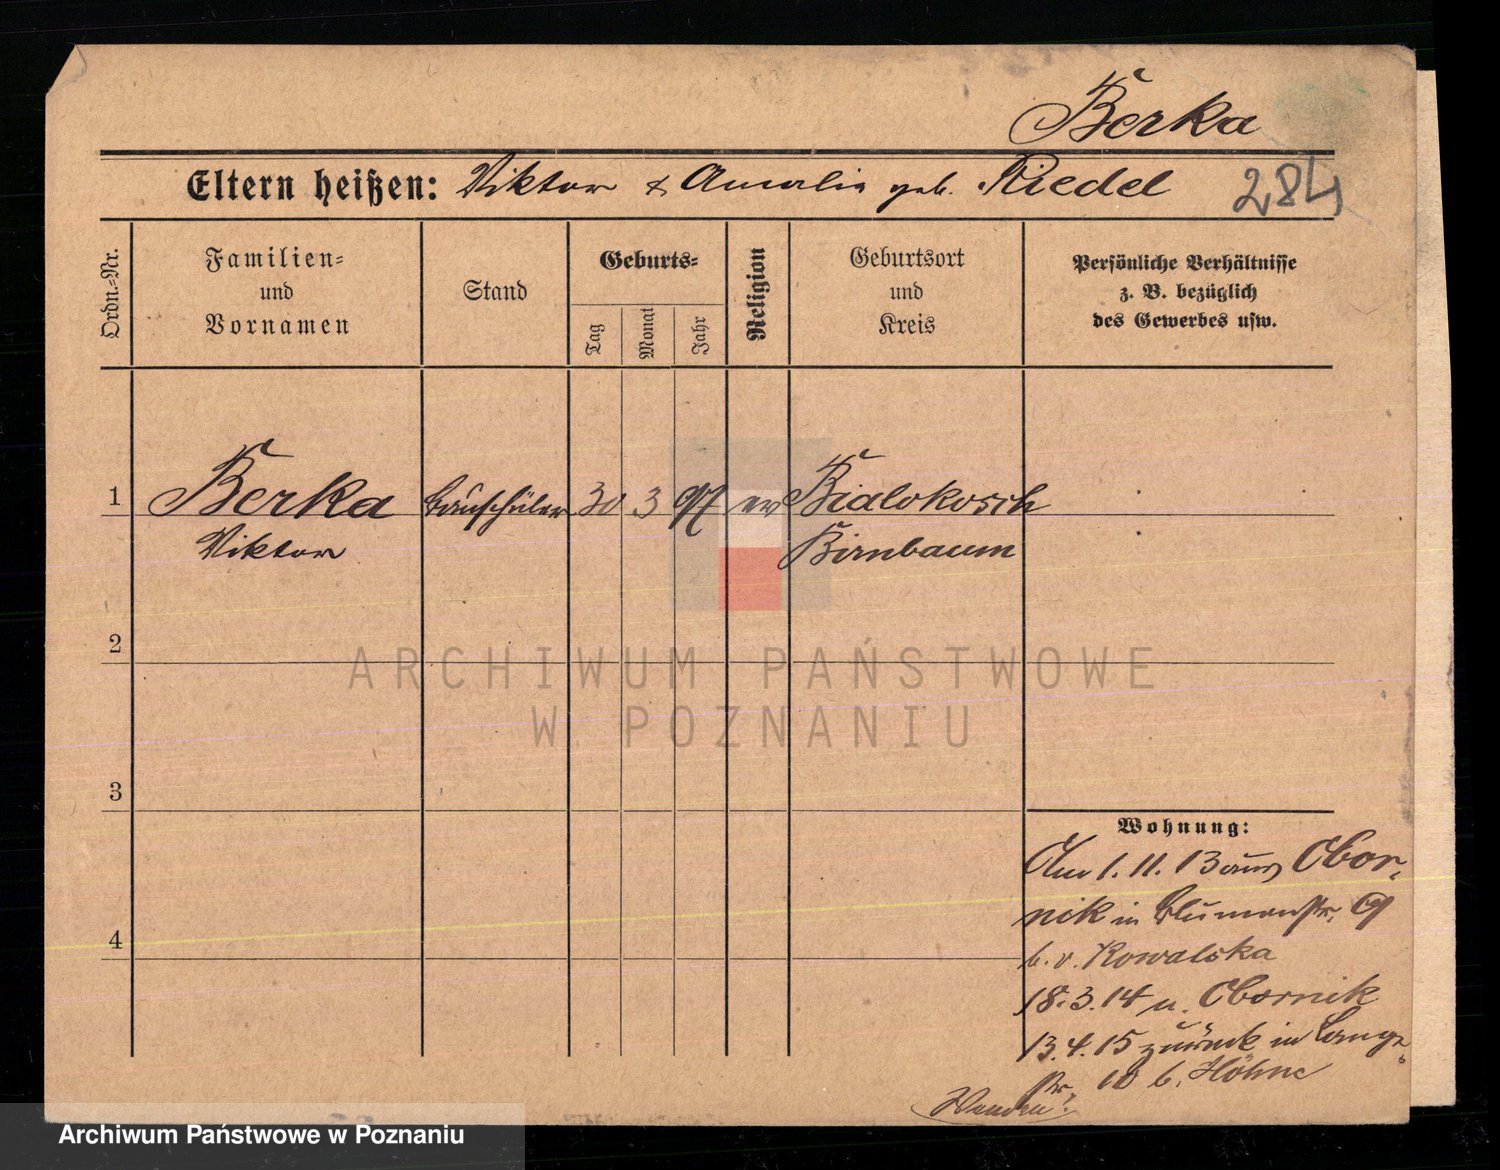 Berka
Eltern heißen: Viktor & Amalie geb. Riedel
284
Ordn.-Nr.
Familien-
und
Vornamen
Stand
Geburts-
Tag
Monat
Jahr
Religion
Geburtsort
und
Kreis
Persönliche Verhältnisse
z. B. bezüglich
des Gewerbes usw.
1 Berka Bauschüler 30 3 97 ev Bialokosch
Viktor Birnbaum
2
ARCHIWUM PAŃSTWOWE
W POZNANIU
3
Wohnung:
Am 1. 11. 13 aus Obor-
nik in Blumenstr. 9
b. v. Kowalska
4
18. 3. 14 n. Obornik
13. 4. 15 zurück in Lange
str. 10 b. Höhne
Wenden!
Archiwum Państwowe w Poznaniu